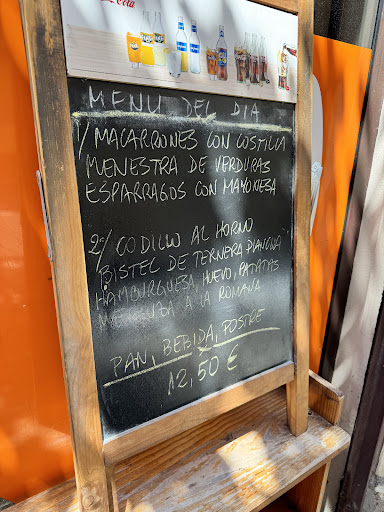 Coca-Cola
MENU DEL DIA
1/ MACARRONES CON COSTILLA
MENESTRA DE VERDURAS
ESPARRAGOS CON MAYONESA
2º/ CODILLO AL HORNO
BISTEC DE TERNERA PLANCHA
HAMBURGUESA, HUEVO, PATATAS
MERLUZA A LA ROMANA
PAN, BEBIDA, POSTRE
12,50 €